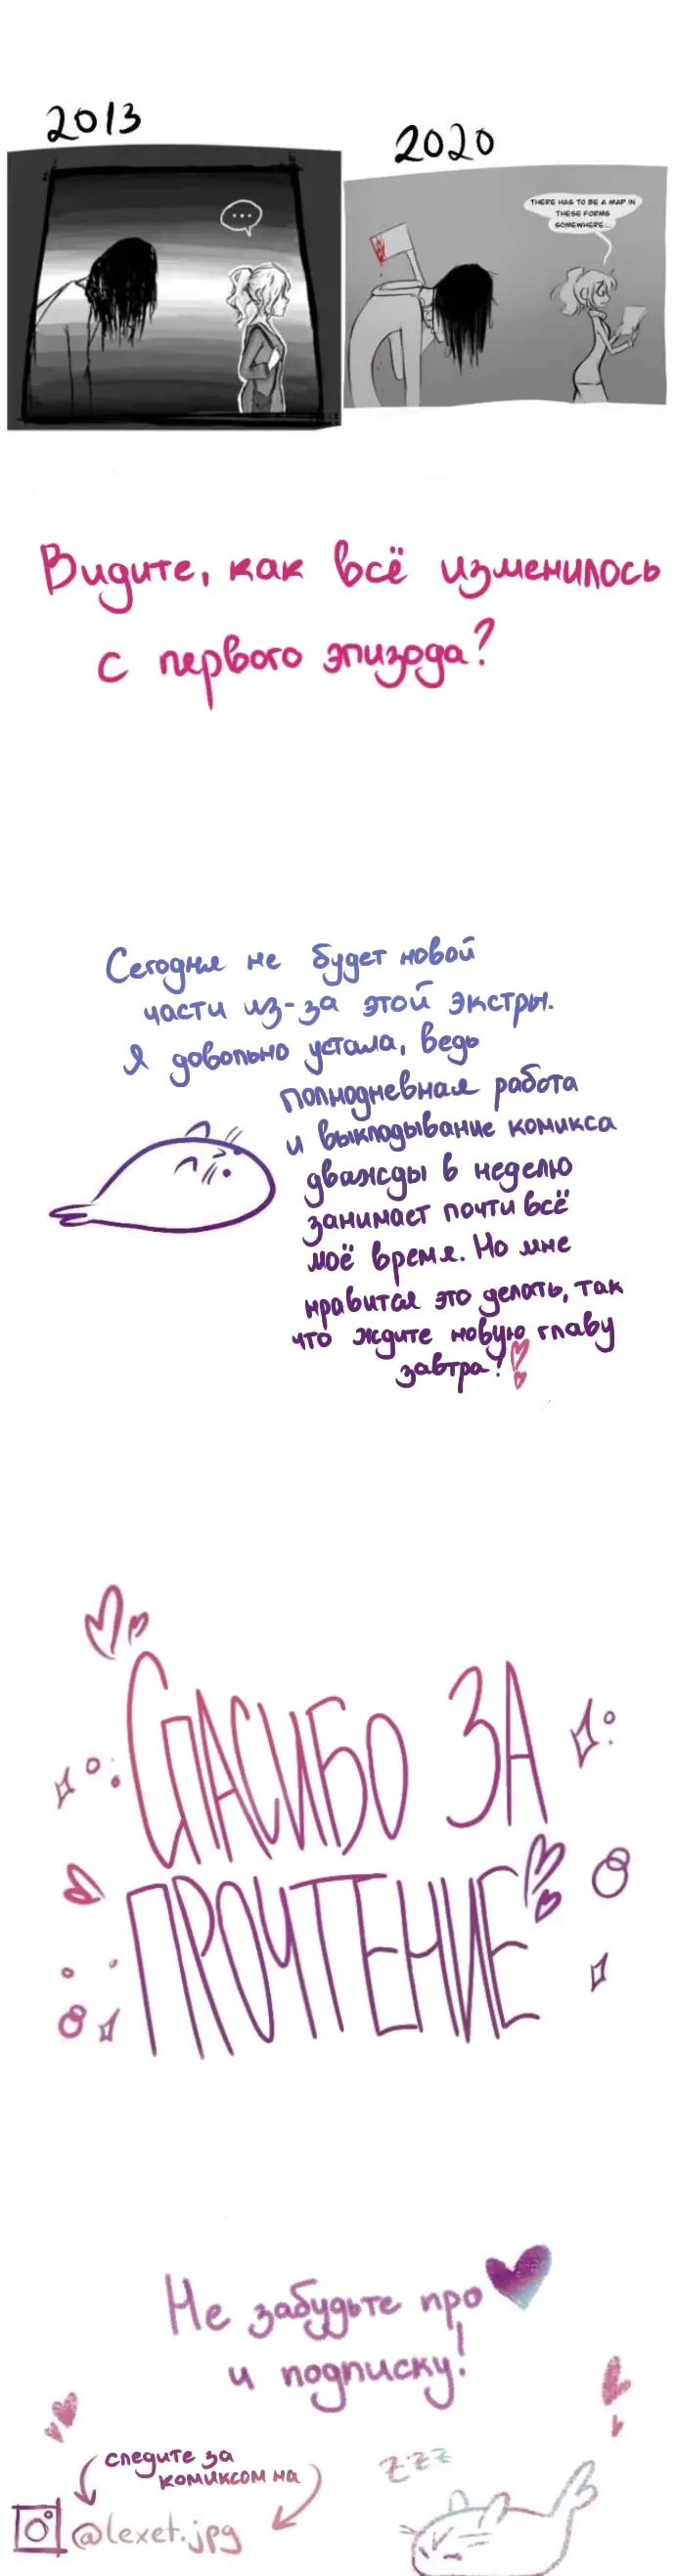 2013
2020
...
THERE HAS TO BE A MAP IN
THESE FORMS
SOMEWHERE...
Видите, как всё изменилось
с первого эпизода?
Сегодня не будет новой
части из-за этой экстры.
Я довольно устала, ведь
полнодневная работа
и выкладывание комикса
дважды в неделю
занимает почти всё
моё время. Но мне
нравится это делать, так
что ждите новую главу
завтра!
СПАСИБО ЗА
ПРОЧТЕНИЕ
Не забудьте про
и подписку!
следите за
комиксом на
@lexet.jpg
z z z